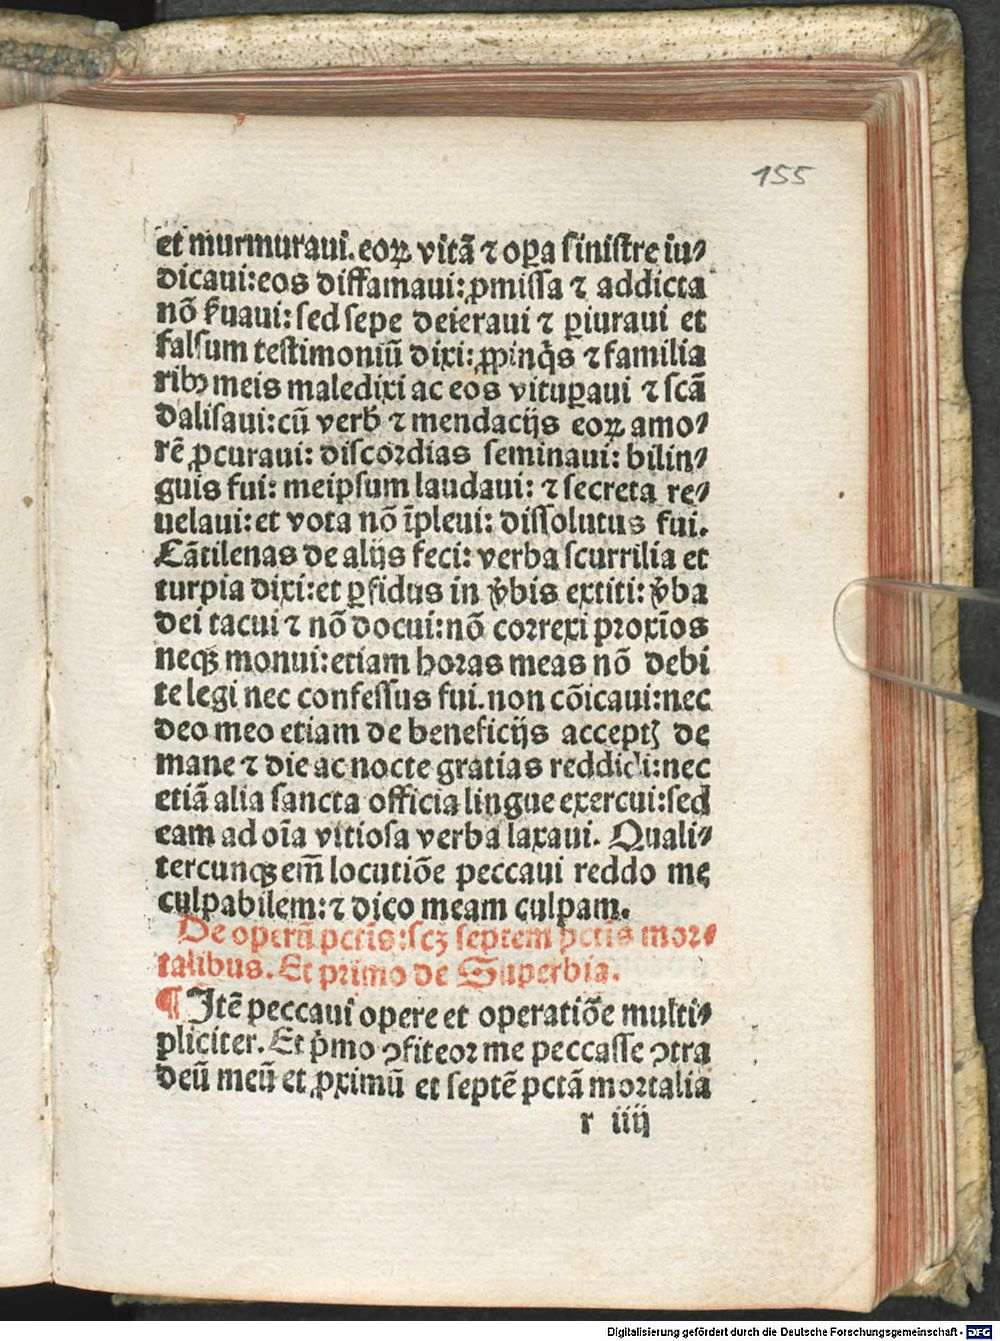 155
et murmuraui. eoꝝ vitã ⁊ oꝑa ſiniſtre iu⸗
dicaui: eos diffamaui: ꝓmiſſa ⁊ addicta
nõ ẜuaui: ſed ſepe deieraui ⁊ ꝑiuraui et
falſum teſtimoniũ dixi: ꝓpinq̃s ⁊ familia
ribꝰ meis maledixi ac eos vituꝑaui ⁊ ſcã
daliſaui: cũ verb̾ ⁊ mendacijs eoꝝ amo⸗
rẽ ꝓcuraui: diſcordias ſeminaui: bilin⸗
guis fui: meipſum laudaui: ⁊ ſecreta re⸗
uelaui: et vota nõ ĩpleui: diſſolutus fui.
Cãtilenas de alijs feci: verba ſcurrilia et
turpia dixi: et ꝑfidus in v̾bis extiti: v̾ba
dei tacui ⁊ nõ docui: nõ correxi proxĩos
neqꝫ monui: etiam horas meas nõ debi
te legi nec confeſſus fui. non cõicaui: nec
deo meo etiam de beneficijs acceptꝭ de
mane ⁊ die ac nocte gratias reddidi: nec
etiã alia ſancta officia lingue exercui: ſed
eam ad oĩa vitioſa verba laxaui. Quali⸗
tercunqꝫ em̃ locutiõe peccaui reddo me
culpabilem: ⁊ dico meam culpam.
De operũ pctĩs: ſcꝫ ſeptem pctĩs mor⸗
talibus. Et primo de Superbia.
¶ Itẽ peccaui opere et operatiõe multi⸗
pliciter. Et p̃mo ꝯfiteor me peccaſſe ꝯtra
deũ meũ et ꝓximũ et ſeptẽ pctã mortalia
r iiij
Digitalisierung gefördert durch die Deutsche Forschungsgemeinschaft - DFG